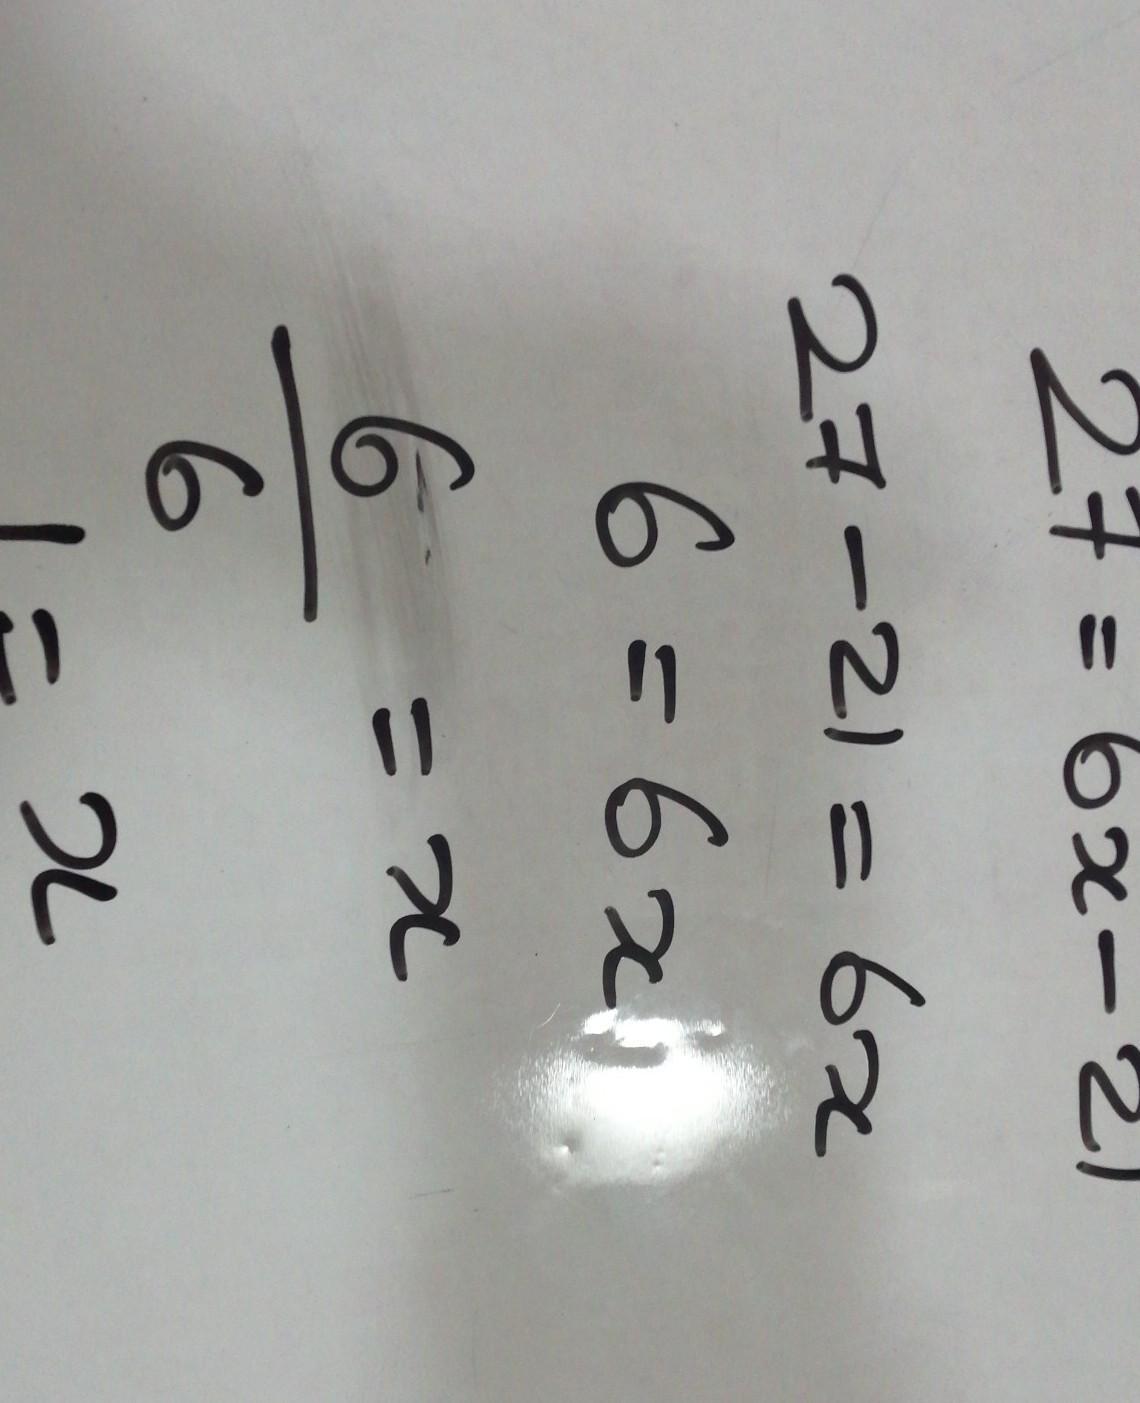 27 = 6x - 21
27 - 21 = 6x
6 = 6x
6/6 = x
1 = x